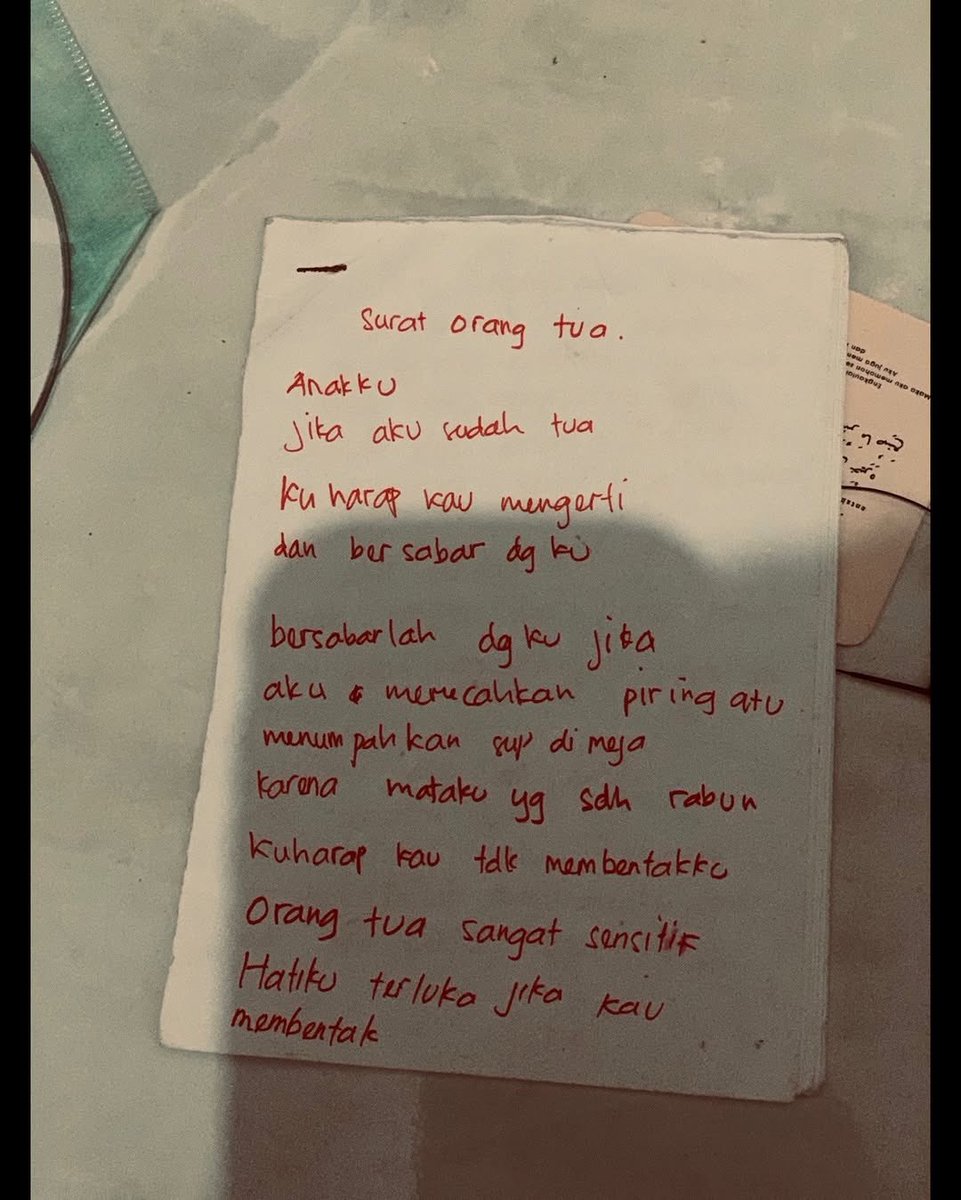 Surat orang tua.
Anakku
jika aku sudah tua
Ku harap kau mengerti
dan ber sabar dg ku
bersabarlah dg ku jika
aku memecahkan piring atu
menumpah kan sup di meja
karena mataku yg sdh rabun
Kuharap kau tdk membentakku
Orang tua sangat sensitif
Hatiku terluka jika kau
membentak
Maka aku memohon
Engkaulah
Aku juga
dan